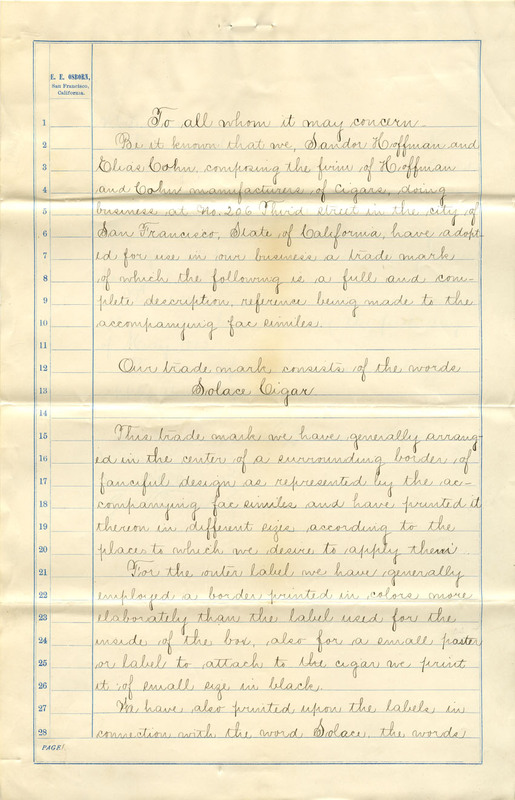 E. E. OSBORN,
San Francisco,
California.
1 To all whom it may concern
2 Be it known that we, Sandor Hoffman and
3 Elias Cohn, composing the firm of Hoffman
4 and Cohn manufacturers of cigars, doing
5 business at No. 206 Third street in the city of
6 San Francisco, State of California, have adopt-
7 ed for use in our business a trade mark
8 of which the following is a full and com-
9 plete description, reference being made to the
10 accompanying fac similes.
11
12 Our trade mark consists of the words
13 Solace Cigar
14
15 This trade mark we have generally arrang-
16 ed in the center of a surrounding border of
17 fanciful design as represented by the ac-
18 companying fac similes and have printed it
19 thereon in different sizes according to the
20 places to which we desire to apply them
21 For the outer label we have generally
22 employed a border printed in colors more
23 elaborately than the label used for the
24 inside of the box, also for a small paster
25 or label to attach to the cigar we print
26 it of small size in black.
27 We have also printed upon the labels in
28 connection with the word Solace, the words
PAGE!